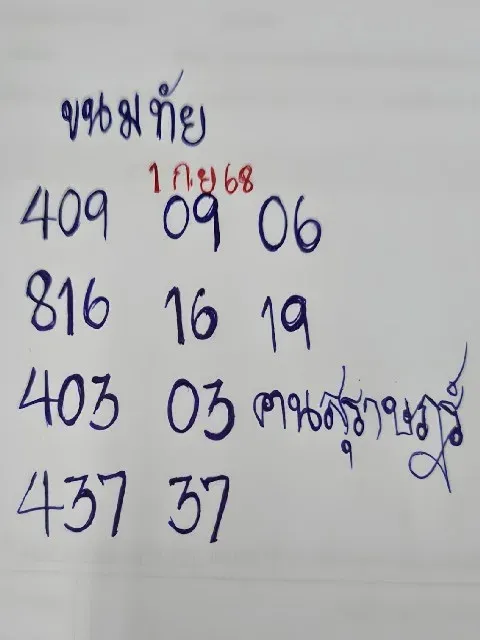 ขนมทัย
1 ก.ย 68
409 09 06
816 16 19
403 03 ฅนสุราษฎร์
437 37